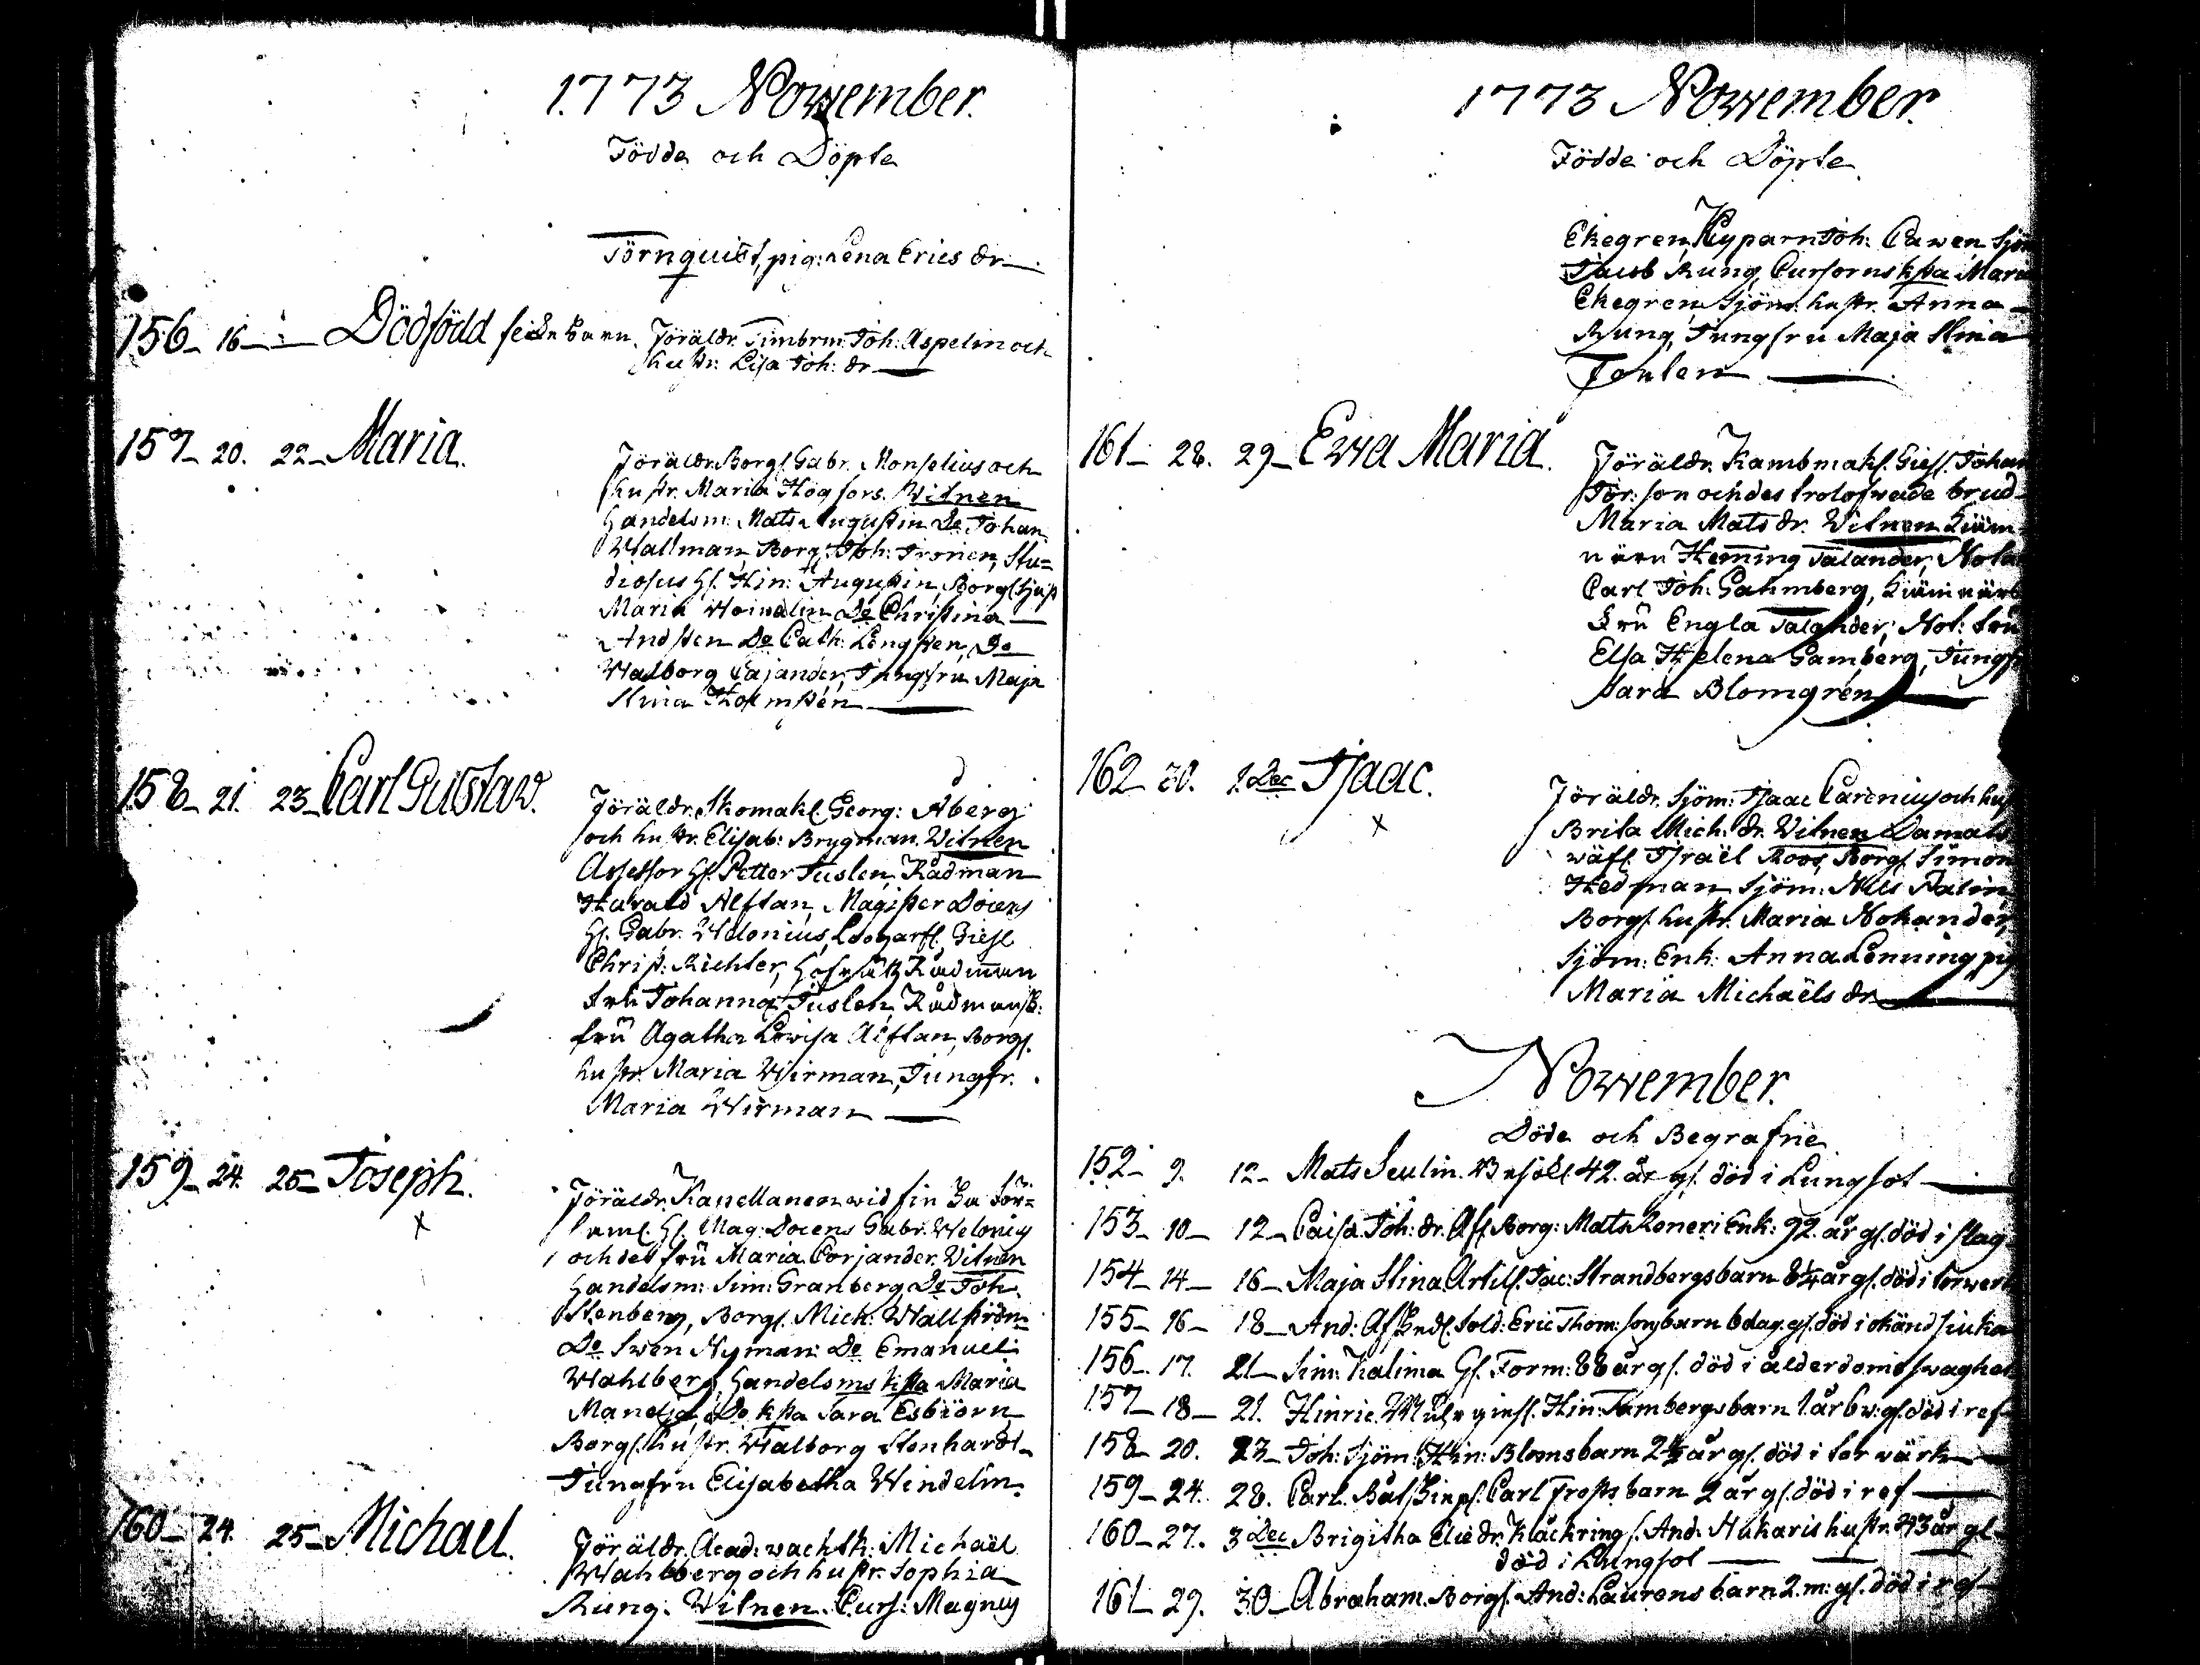 1773 November.
Födde och Döpte
Törnquist, pig: Lena Erics dr
156 - 16 - Dödfödd barn. Föräldr. Timbrm: Joh: Aspelin och
hustr. Lisa Joh: dr
157 - 20. 22 - Maria. Föräldr. Borg. Gabr. Monselius och
hustr. Maria Högfors. Witnen
Handelsm: Mats Augustin Do Johan
Wallman, Borg: Joh: Tronen, Stu=
diosus H. Hin: Augustin, Borg
Maria Do Christina
Do Cath: Lengsten, Do
Walborg Cajander, Jungfru Maja
Stina Holmsten
158 - 21. 23 - Carl Gustaw. Föräldr. Skomak. Georg: Åberg
och hustr. Elisab: Brygman. Witnen
Assessor H. Petter Juslen, Rådman
Harald Alftan, Magister Docens
H. Gabr. Welonius, Gies.
Christ: Richter, Rådman
fru Johanna Juslen, Rådmans
fru Agatha Lowisa Alftan, Borg.
hustr. Maria Wirman, Jungfr.
Maria Wirman
159 - 24. 25 - Joseph. Föräldr.
H. Mag: Docens Gabr: Welonius
och des fru Maria Corjander. Witnen
Handelsm: Sim: Granberg, Do Joh.
Stenberg, Borg. Mich: Wallström
Do Swen Nyman: Do Emanuel
Wahlberg, Handelsms kssa Maria
Do kssa Sara Esbiörn
Borgs. hustr. Walborg Stenhardt
Jungfru Elisabetha Windelin.
160 - 24. 25 - Michael. Föräldr. Acad: wachtk: Michaël
Wahlberg och hustr. Sophia
Rung. Witnen. Curs: Magnus
1773 November.
Födde och Döpte
Ekegren, Kyparn Joh: Cawen, Sjöm
Jacob Rung, Cursorns kssa Maria
Ekegren, Sjöms. hustr. Anna
Rung, Jungfru Maja Stina
161 - 28. 29 - Ewa Maria. Föräldr. Kambmak. Gies. Johan
Jör: son och des trolofwade brud
Maria Mats dr. Witnen
Heming Talander, Nota
Carl Joh: Gahmberg,
fru Engla Talander, Not: fru
Elsa Helena Gamberg, Jungf
Sara Blomgren
162 - 30. 1 Dec Isaac. Föräldr. Sjöm: Isaac Carenius och hus
Brita Mich: dr. Witnen Damast
wäf. Israël Roos, Borg. Simon
Hedman Sjöm: Nils Palin,
Borgs. hustr. Maria Nohander,
Sjöm: Enk: Anna Lönning pig
Maria Michaëls dr
November.
Döde och Begrafne
152 - 9. 12 - Mats Seulin. 42. år gl. död i Lungsot
153 - 10 - 12 - Caisa Joh: dr. Af Borg: Mats Enk: 92. år gl. död i slag
154 - 14 - 16 - Maja Stina Artil. Jac: Strandbergs barn 8 1/4 år gl. död i torwerk
155 - 16 - 18 - And: Sold: Eric Thom: sons barn 6 dag. gl. död i okänd siuka
156 - 17. 21 - Sim: Kalima H. Form: 88 år gl. död i ålderdoms swaghet
157 - 18 - 21. Hinric. gies. Hin: barn 1. år 6 w: gl. död i ref
158 - 20. 23 - Joh: Sjöm: Hin: Bloms barn 2 1/2 år gl. död i torwärk
159 - 24. 28. Carl. Carl Frosts barn 2 år gl. död i ref
160 - 27. 3 Dec Brigitha Elie dr. Klåckring. And: Hukaris hustr. 43 år gl
död i Lungsot
161 - 29. 30 - Abraham. Borg. And: Laurens barn 2. m: gl. död i ref